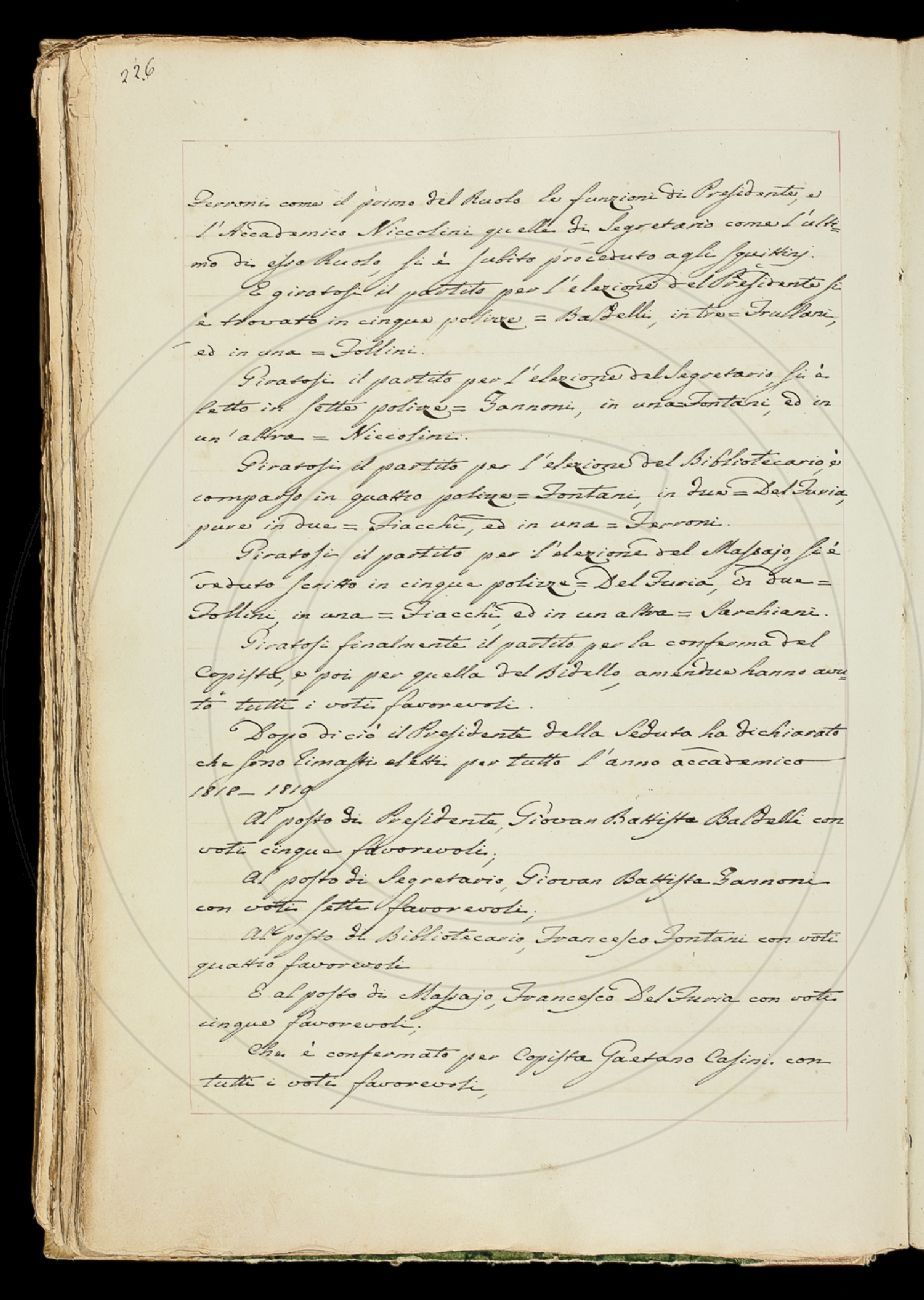 226
Ferroni come il primo del Ruolo le funzioni di Presidente, e
l'Accademico Niccolini quelle di Segretario come l'ulti=
mo di esso Ruolo, si è subito proceduto agli Squittinj.
E giratosi il partito per l'elezione del Presidente si
è trovato in cinque polizze = Baldelli, in tre = Frullani,
ed in una = Follini.
Giratosi il partito per l'elezione del Segretario, si è
letto in sette polizze = Zannoni, in una = Fontani, ed in
un'altra = Niccolini.
Giratosi il partito per l'elezione del Bibliotecario, è
comparso in quattro polizze = Fontani, in due = Del Furia,
pure in due = Fiacchi, ed in una = Ferroni.
Giratosi il partito per l'elezione del Massajo, si è
veduto scritto in cinque polizze = Del Furia, in due =
Follini, in una = Fiacchi, ed in un altra = Sarchiani.
Giratosi finalmente il partito per la conferma del
Copista, e poi per quella del Bidello, amendue hanno avu=
to tutti i voti favorevoli.
Dopo di ciò il Presidente della Seduta ha dichiarato
che sono rimasti eletti per tutto l'anno accademico
1818 - 1819
Al posto di Presidente, Giovan Battista Baldelli con
voti cinque favorevoli;
Al posto di Segretario, Giovan Battista Zannoni
con voti sette favorevoli;
Al posto di Bibliotecario, Francesco Fontani con voti
quattro favorevoli
E al posto di Massajo, Francesco Del Furia con voti
cinque favorevoli;
Che è confermato per Copista Gaetano Casini con
tutti i voti favorevoli,